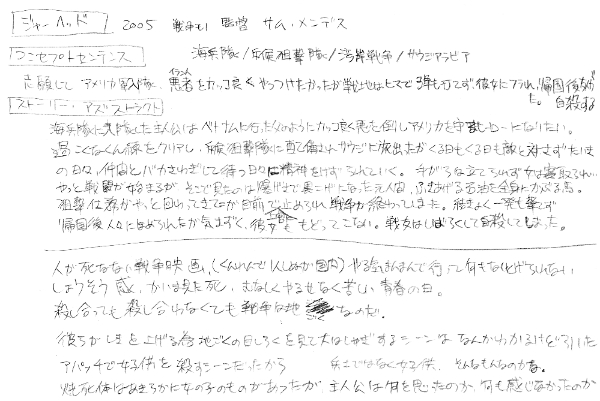 ジャーヘッド 2005 戦争モノ 監督 サム・メンデス
コンセプトセンテンス 海兵隊/斥候狙撃隊/湾岸戦争/サウジアラビア
志願して アメリカ軍隊、悪者をカッコ良くやっつけたかったが戦地はヒマで弾も打てず、彼女にフラれ、帰国後
自殺する
ストーリー・アブストラクト
海兵隊に入隊した主人公はベトナムに行った のようにカッコ良く悪を倒しアメリカを守るヒーローになりたい。
過こくなくん練をクリアし、斥候狙撃隊に配 サウジに放出たがくる日もくる日も敵と対さずたいき
の日々、仲間とバカさわぎして待つ日々に精神をけずられていく。手がらも立てられず女は寝取られ…
やっと戦闘が始まるが そこで見たのは爆げきで黒こげになった死人、ふきあげる石油を全身にかぶる馬。
狙撃任務がやっと回ってきてが目前で止められ戦争が終わってしまう。結きょく一発も撃てず
帰国後人々にほめられたが気まずく、彼女ももどってこない。戦友はしばらくして自殺してしまった。
人が死なない戦争映画、(くんれんで1人しぬが国内) やる気まんまんで行って何もなしとげられない
しょうそう感、かいま見た死、むなしくやるせなく苦い青春の日。
殺し合っても殺し合わなくても戦争は地ごくなのだ。
彼らがしまを上げる為 地ごくの日しろくを見て大はしゃぎするシーンはなんかわかるけど引いた
アパッチで女子供を殺すシーンだったから 兵ではなく女子供、そんなもんなのかな。
焼死体はあきらかに女の子のものがあったが、主人公は何を思ったのか、何も感じなかったのか